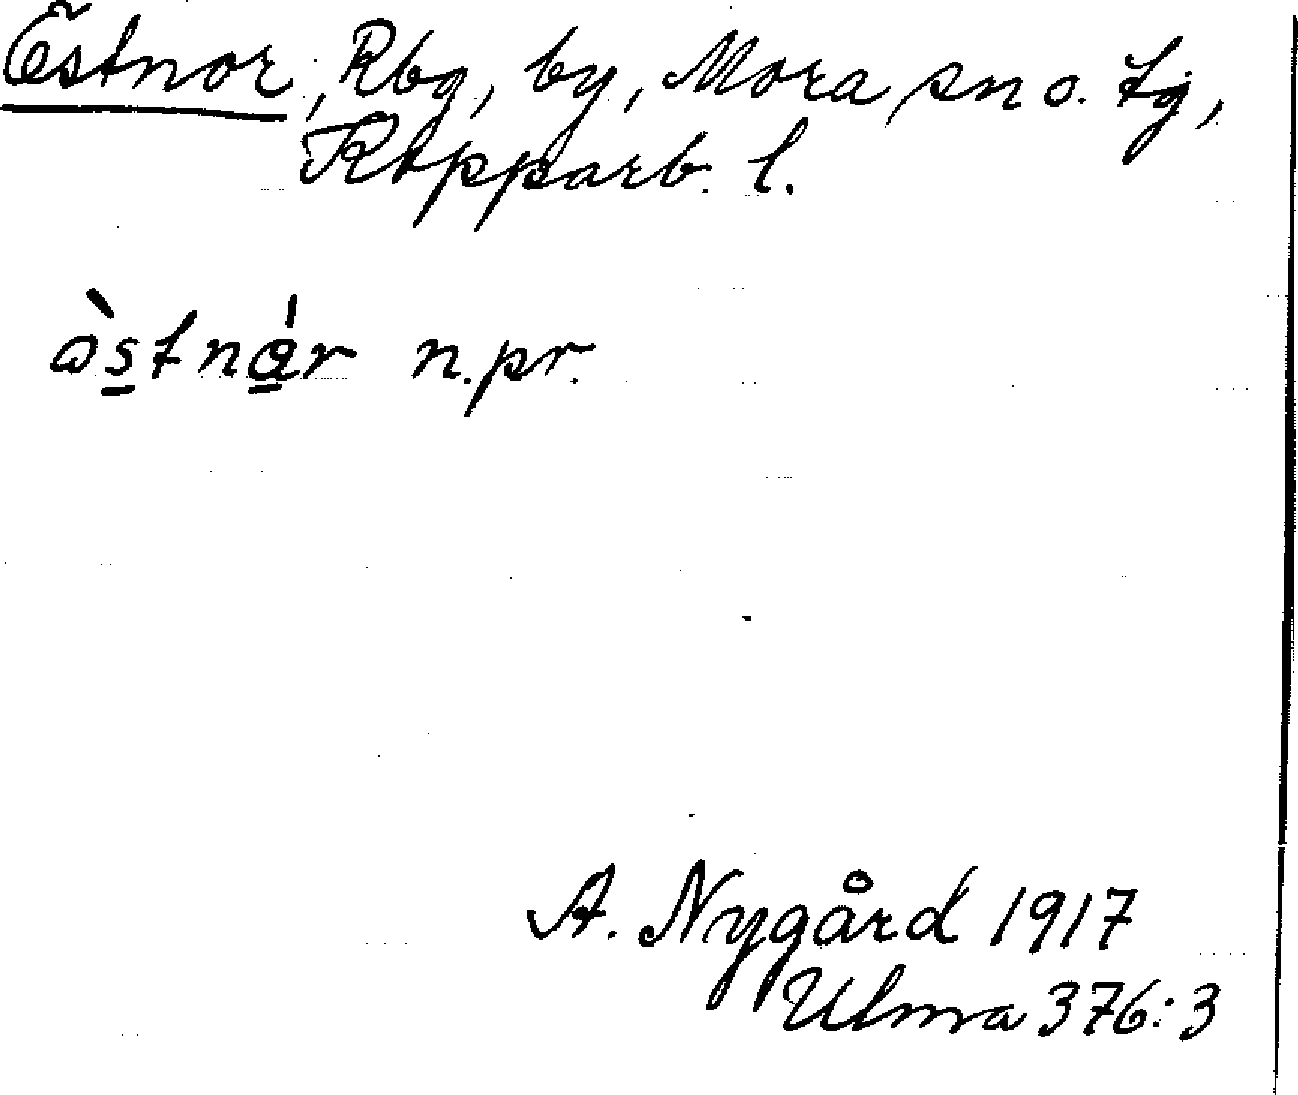 Östnor, Rbg, by, Mora sn o. tg,
Kopparb. l.
òstnár n.pr.
A. Nygård 1917
Ulma 376:3